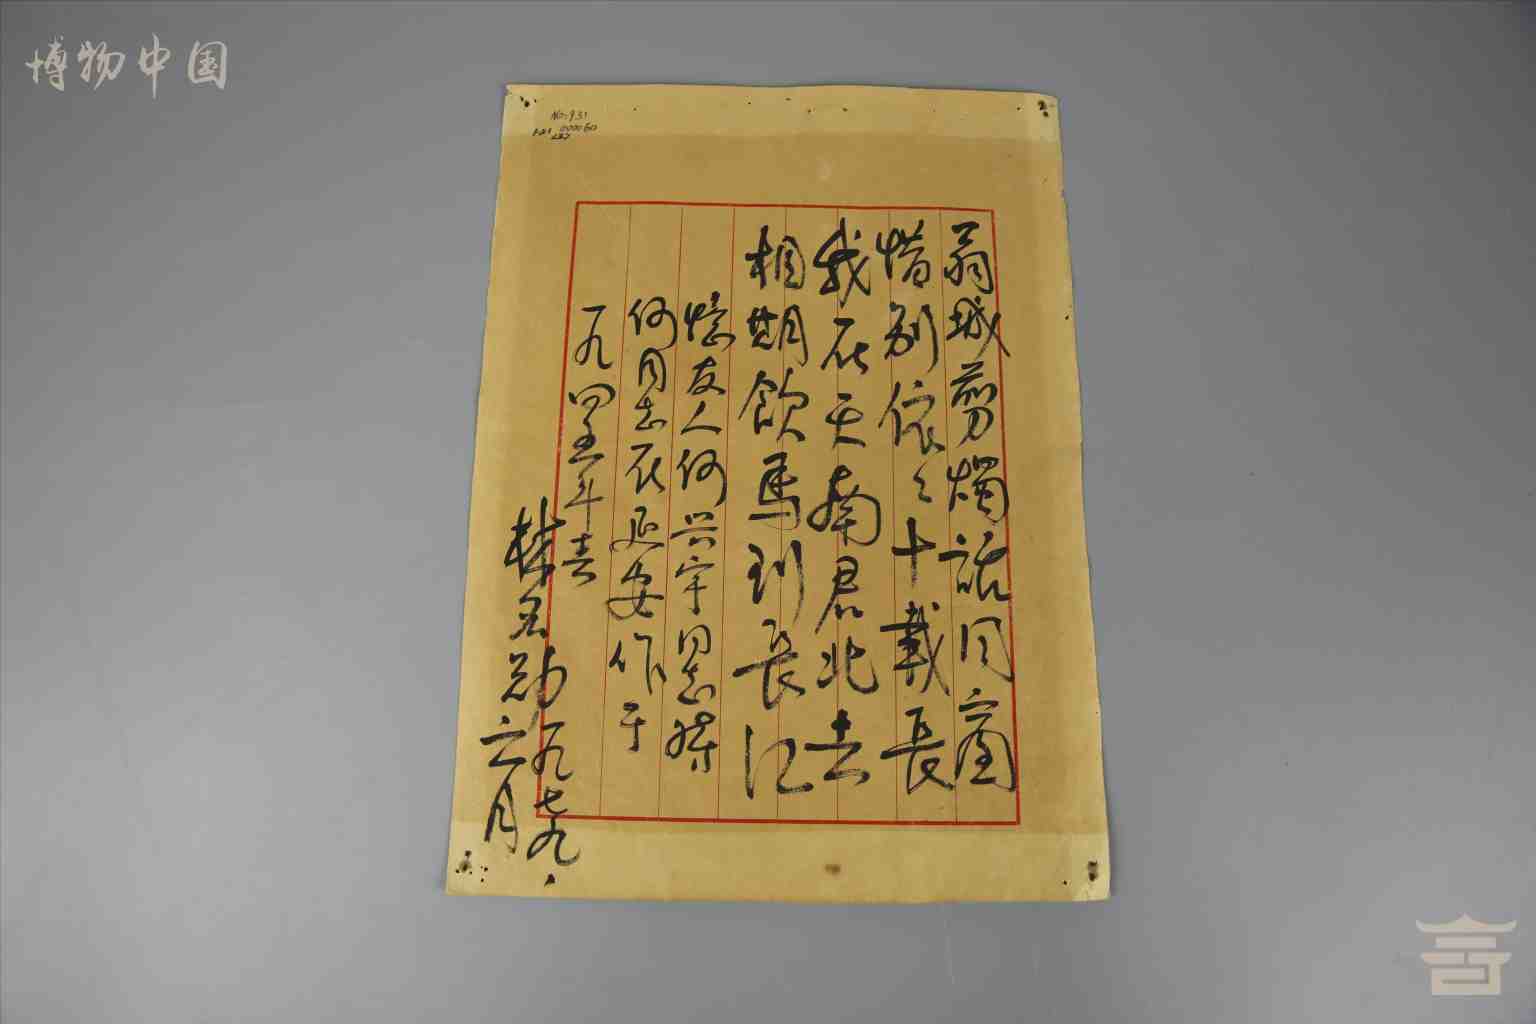 博物中国
No:931
000060
翁城剪燭話同窗
惜别依々十載長
我在天南君北去
相期飲馬到長江
憶友人何兴宇同志
何同志在延安作于
一九四五年春
一九七九、
月